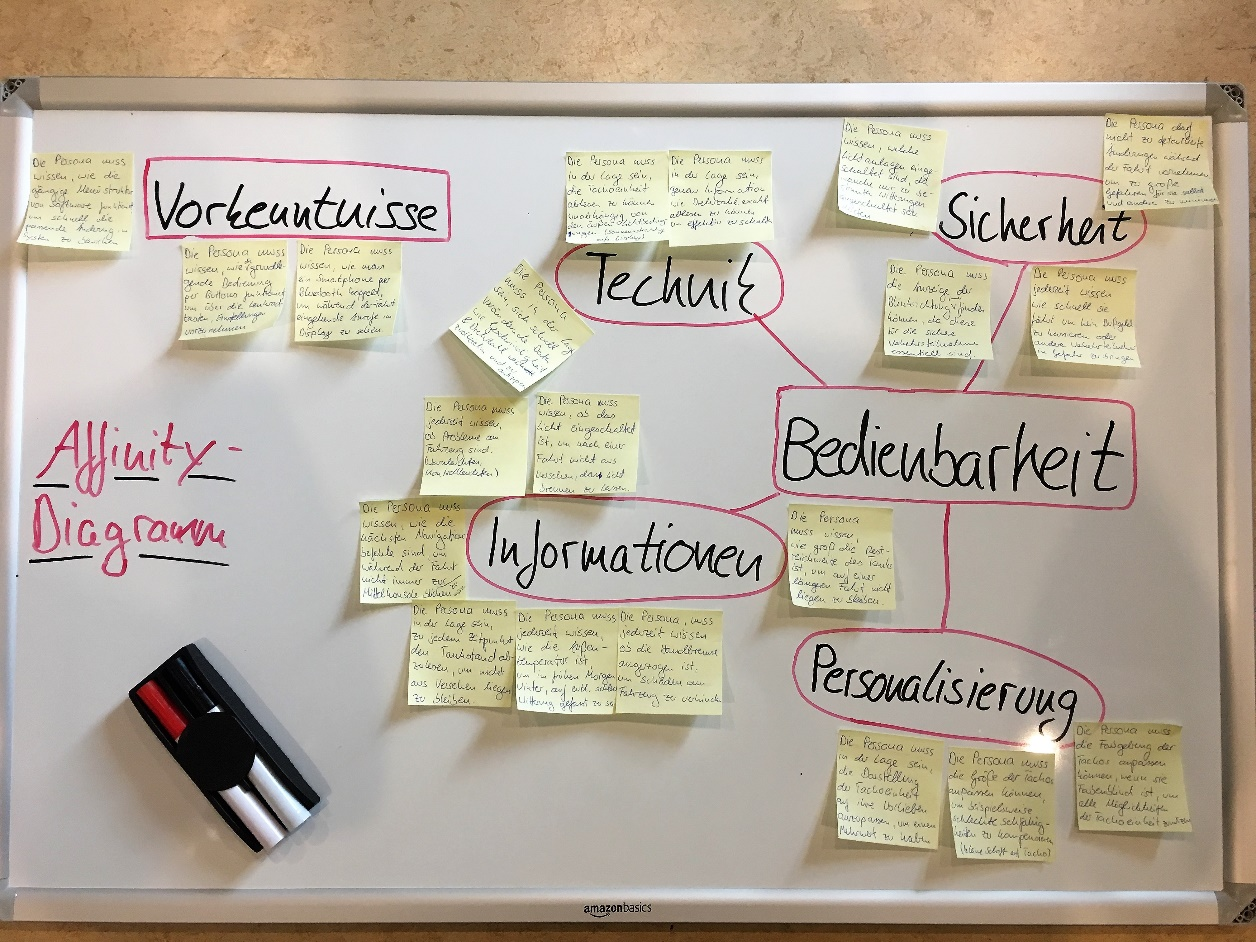 Die Persona muss
wissen, wie die
gängige Menüstruktur
von Software funktioniert
um schnell die
passende Änderung im
System zu
Vorkenntnisse
Die Persona muss
wissen, wie grundle-
gende Bedienung
per Buttons funktioniert
um über die Lenkrad
tasten, Einstellungen
vorzunehmen
Die Persona muss
wissen, wie man
ein Smartphone per
Bluetooth koppelt,
um während der Fahrt
eingehende Anrufe im
Display zu sehen
Affinity-
Diagramm
Die Persona muss
in der Lage sein,
die Tachoeinheit
ablesen zu können
unabhängig von
den
Die Persona muss
in der Lage sein,
genau Information
wie Drehzahl exakt
ablesen zu können
um effektiv zu schalten
Technik
Die Persona
muss in der Lage
sein, sich schnell
Die Persona muss
wissen, welche
Lichtanlagen einge
schaltet sind, damit
Die Persona darf
nicht zu detaillierte
Änderungen während
der Fahrt vornehmen
um zu große
Gefahren für sie selbst
und andere zu vermeiden
Sicherheit
Die Persona muss
die Anzeige der
Blinkrichtung finden
können, da diese
für die sichere
Verkehrsteilnahme
essentiell sind.
Die Persona muss
jederzeit wissen
wie schnell sie
fährt um kein Bußgeld
zu kassieren oder
andere Verkehrsteilnehmer
in Gefahr zu bringen
Bedienbarkeit
Die Persona muss
jederzeit wissen,
ob Probleme am
Fahrzeug sind.
Die Persona muss
wissen, ob das
Licht eingeschaltet
ist, um nach einer
Fahrt nicht aus
Versehen, das Licht
brennen zu lassen
Die Persona muss
wissen, wie die
nächsten Navigations
befehle sind um
während der Fahrt
nicht immer zur
Mittelkonsole
Informationen
Die Persona
muss wissen,
wie groß die Rest-
reichweite des Tanks
ist, um auf einer
längeren Fahrt nicht
liegen zu bleiben.
Die Persona muss
in der Lage sein,
zu jedem Zeitpunkt
den Tankstand ab-
zulesen, um nicht
aus Versehen liegen
zu bleiben
Die Persona muss
jederzeit wissen,
wie die Außen-
temperatur ist,
um im frühen Morgen
Winter, auf evtl.
Die Persona, muss
jederzeit wissen
ob die Handbremse
angezogen ist.
um Schäden am
Fahrzeug zu
Personalisierung
Die Persona muss
in der Lage sein,
die Darstellung
der Tachoeinheit
auf ihre Vorlieben
anzupassen, um einen
Mehrwert zu haben
Die Persona muss
die Größe der Tachos
anpassen können,
um beispielsweise
schlechte Sehfähig-
keiten zu kompensieren
Die Persona muss
die Farbgebung der
Tachos anpassen
können, wenn sie
Farbenblind ist, um
alle Möglichkeiten
der Tachoeinheit
amazonbasics